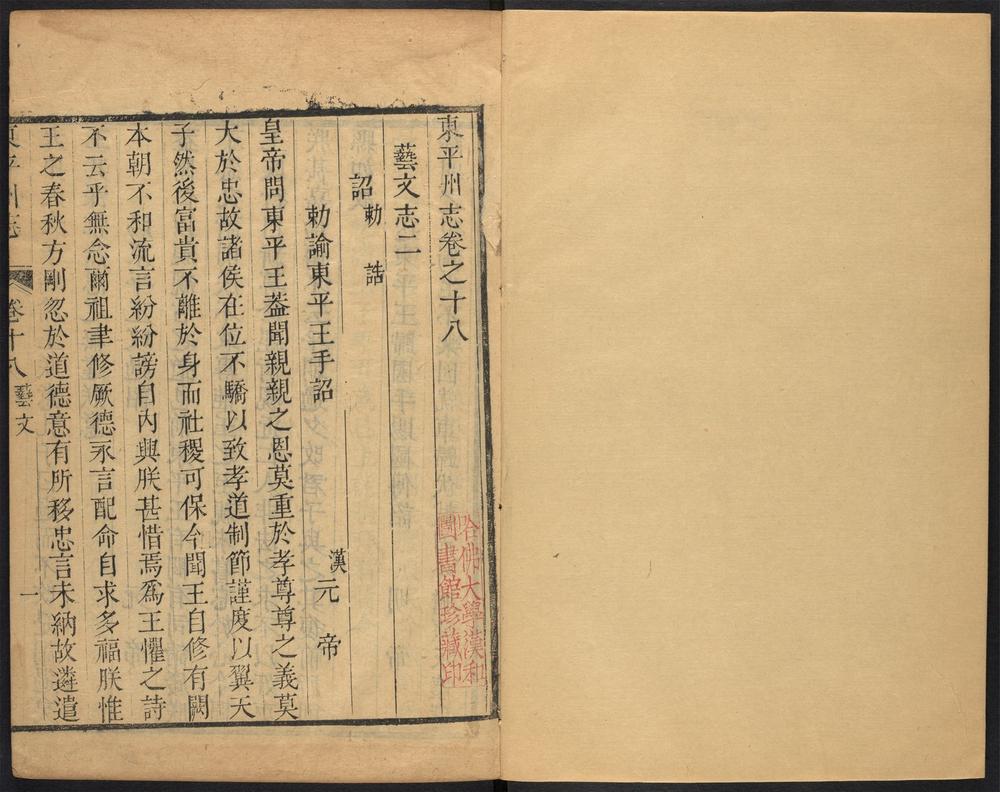 東平州志卷之十八
藝文志二
詔 勅 誥
勅諭東平王手詔 漢元帝
皇帝問東平王葢聞親親之恩莫重於孝尊尊之義莫
大於忠故諸侯在位不驕以致孝道制節謹度以翼天
子然後富貴不離於身而社稷可保今聞王自修有闕
本朝不和流言紛紛謗自內興朕甚惜焉爲王懼之詩
不云乎無念爾祖聿修厥德永言配命自求多福朕惟
王之春秋方剛忽於道德意有所移忠言未納故遴遣
東平州志 卷十八 藝文 一
哈佛大學漢和
圖書館珍藏印